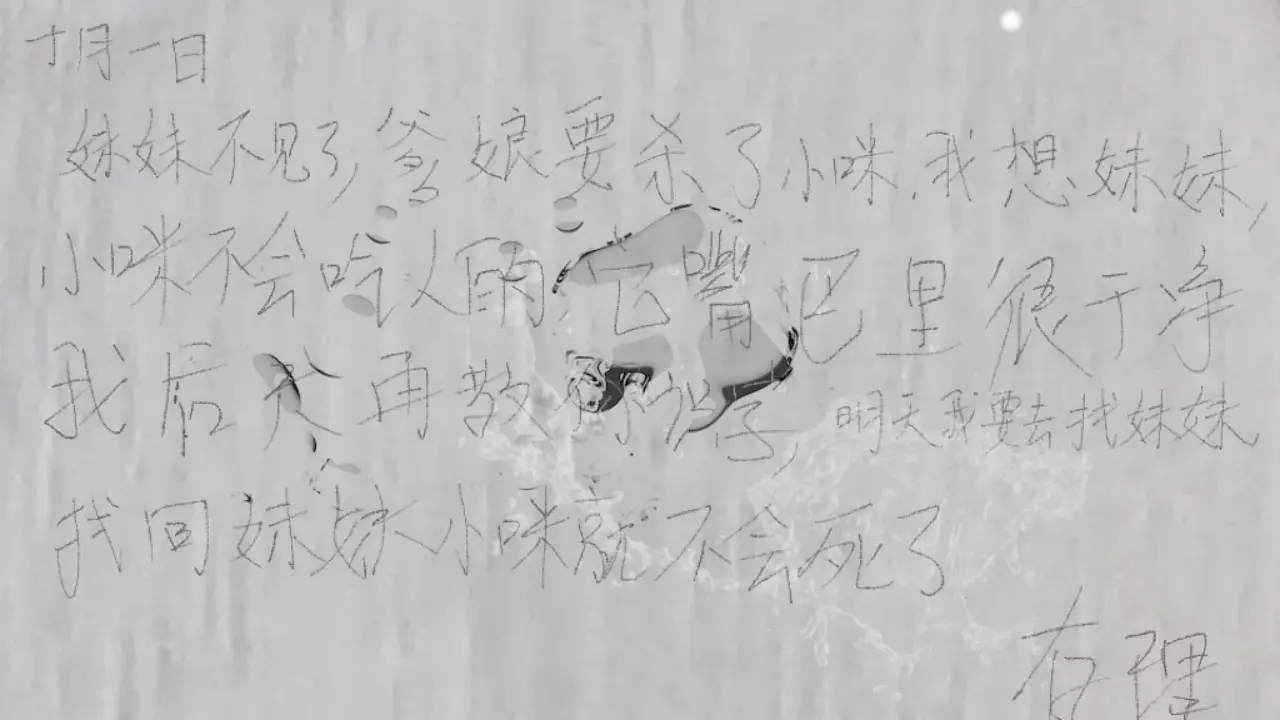 十月一日
妹妹不见了,爹娘要杀了小咪.我想妹妹,
小咪不会吃人的,它嘴巴里很干净
我后天再教你识字,明天我要去找妹妹
找回妹妹小咪就不会死了
有理